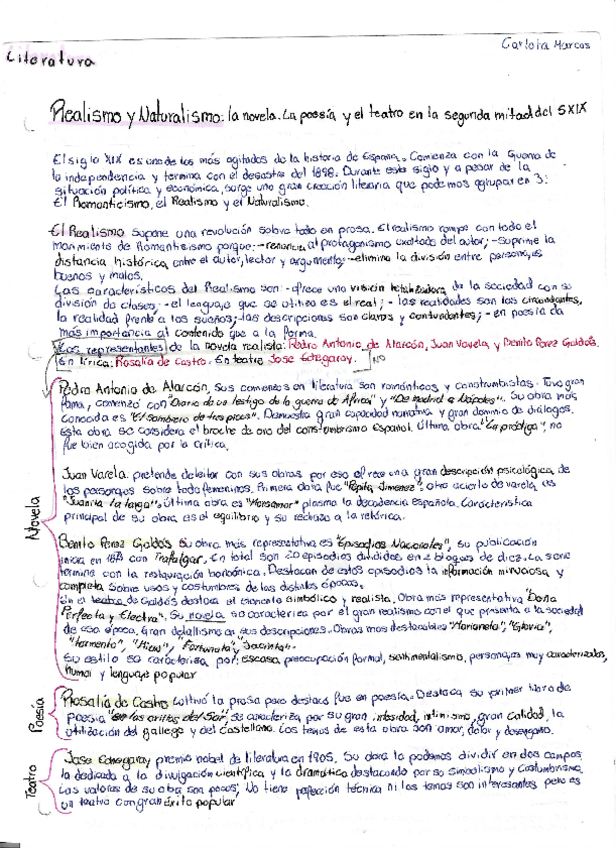 Carlota Marcos
Literatura
Realismo y Naturalismo: la novela. La poesía y el teatro en la segunda mitad del SXIX
El siglo XIX es uno de los más agitados de la historia de España. Comienza con la Guerra de
la independencia y termina con el desastre del 1898. Durante este siglo y a pesar de la
situación política y económica, surge una gran creación literaria que podemos agrupar en 3:
El Romanticismo, el Realismo y el Naturalismo.
El Realismo. Supone una revolución sobre todo en prosa. El realismo rompe con todo el
movimiento de Romantisismo porque: -renuncia al protagonismo exaltado del autor; -suprime la
distancia histórica entre el autor, lector y argumento; -elimina la división entre personajes
buenos y malos.
Las características del Realismo son: -ofrece una visión totalizadora de la sociedad con su
división de clases; -el lenguaje que se utiliza es el real; - las realidades son las circundantes,
la realidad frente a los sueños; -las descripciones son claras y contundentes; - en poesía da
más importancia al contenido que a la forma.
Los representantes de la novela realista: Pedro Antonio de Alarcón, Juan Varela, y Benito Pérez Galdós.
En lírica: Rosalía de Castro. En teatro José Echegaray. NO
Novela
Pedro Antonio de Alarcón, sus comienzos en literatura son románticos y construmbistas. Tuvo gran
fama, comenzó con "Diario de un testigo de la guerra de África" y "De madrid a Nápoles". Su obra más
conocida es "El sombrero de tres picos". Demuestra gran capacidad narrativa y gran dominio de diálogos.
Esta obra se considera el broche de oro del construmbrismo español. Última obra "La pródiga", no
fue bien acogida por la crítica.
Juan Varela: pretende deleitar con sus obras por eso ofrece una gran descripción psicológica de
los personajes sobre todo femeninos. Primera obra fue "Pepita Jimenez" otro acierto de varela es
"Juanita la larga". Última obra es "Morsamor" plasma la decadencia española. Característica
principal de su obra es el equilibrio y su rechazo a la retórica.
Benito Pérez Galdós Su obra más representativa es "Episodios Nacionales", su publicación
inicia en 1873 con Trafalgar. En total son 20 episodios divididos en 2 bloques de diez. La serie
termina con la restauración borbónica. Destacan de estos episodios la información minuciosa y
completa sobre usos y costumbres de las distintas épocas.
En el teatro de Galdós destaca el elemento simbólico y realista. Obra más representativa "Doña
Perfecta y Electra". Su novela se caracteriza por el gran realismo con el que presenta a la sociedad
de esa época. Gran detallismo en sus descripciones. Obras más destacables "Marianela", "Gloria",
"Tormento", "Miau", "Fortunata y Jacinta".
Su estilo se caracteriza por: escasa preocupación formal, sentimentalismo, personajes muy caracterizados,
humor y lenguaje popular
Poesía
Rosalía de Castro cultivó la prosa pero destaca fue en poesía. Destaca su primer libro de
poesía "en las orillas del Sar", se caracteriza por su gran intensidad, intimismo, gran calidad, la
utilización del gallego y del Castellano. Los temas de esta obra son amor, dolor y desengaño.
Teatro
Jose Echegaray premio nobel de literatura en 1905. Su obra la podemos dividir en dos campos
la dedicada a la divulgación científica y la dramática destacando por su simbolismo y Costumbrismo.
Los valores de su obra son pocos; No tiene perfección técnica ni los temas son interesantes pero es
un teatro con gran éxito popular